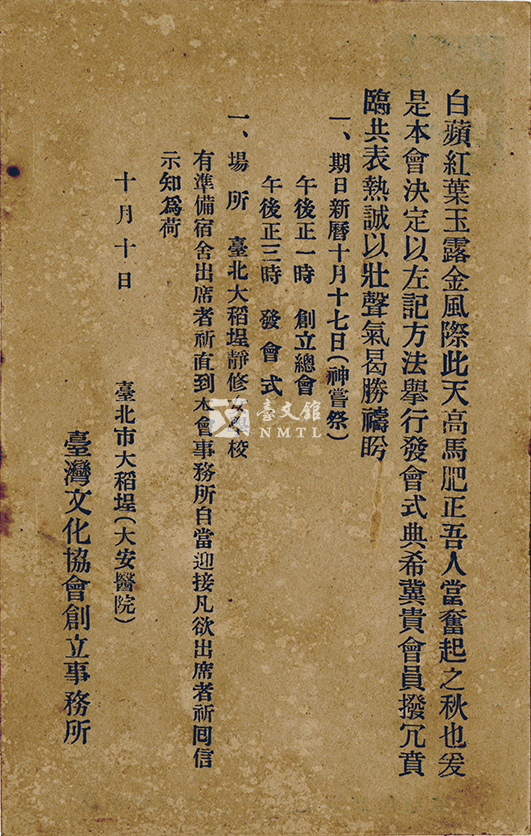 白蘋紅葉玉露金風際此天高馬肥正吾人當奮起之秋也爰
是本會決定以左記方法舉行發會式典希冀貴會員撥冗賁
臨共表熱誠以壯聲氣曷勝禱盼
一、期日新曆十月十七日(神嘗祭)
午後正一時 創立總會
午後正三時 發會式
一、場所 臺北大稻埕靜修女學校
有準備宿舍出席者祈直到本會事務所自當迎接凡欲出席者祈囘信
示知爲荷
十月十日
臺北市大稻埕(大安醫院)
臺灣文化協會創立事務所
臺文館
NMTL